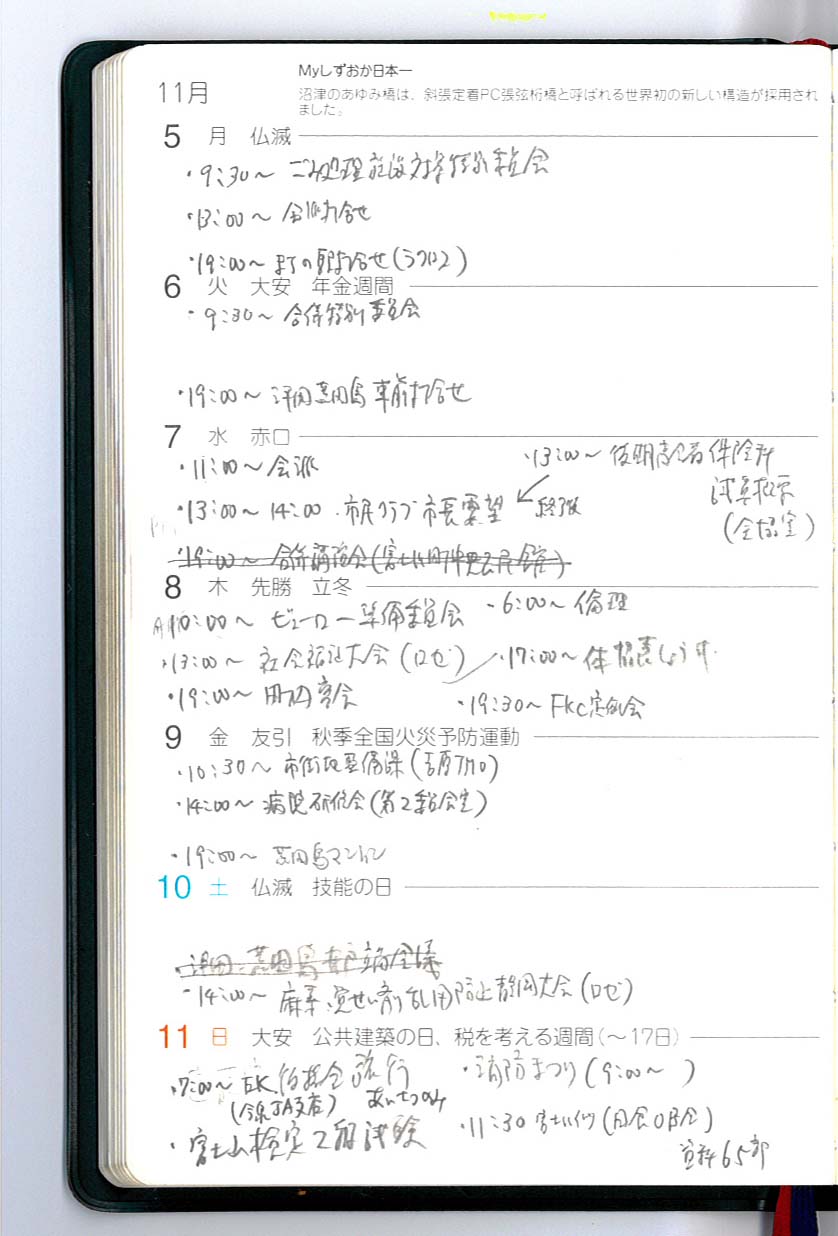 11月
Myしずおか日本一
沼津のあゆみ橋は、斜張定着PC張弦桁橋と呼ばれる世界初の新しい構造が採用され
ました。
5 月 仏滅
・9:30〜 ごみ処理施設対策特別委員会
・13:00〜 打合せ
・19:00〜 打合せ(ラクロス)
6 火 大安 年金週間
・9:30〜 合併特別委員会
・19:00〜 津田荒田島 事前打合せ
7 水 赤口
・11:00〜 会派
・13:00〜 後期高齢者保険料
試算提示
(全協室)
・13:00〜14:00 市民クラブ 市長要望 終了後
・19:00〜 合併講演会(富士川町中央公民館)
8 木 先勝 立冬
AM10:00〜 ビューロー準備委員会
・6:00〜 倫理
・13:00〜 社会福祉大会(ロゼ)
・17:00〜 体協表しょう式
・19:00〜 町内
・19:30〜 FKC定例会
9 金 友引 秋季全国火災予防運動
・10:30〜 市街地整備課(吉原)
・14:00〜 病院研修会(第2委員会室)
・19:00〜 荒田島マンドリン
10 土 仏滅 技能の日
・津田・荒田島
・14:00〜 麻薬・覚せい剤乱用防止静岡大会(ロゼ)
11 日 大安 公共建築の日、税を考える週間(〜17日)
・7:00〜 旅行
(今泉JA支店) あいさつのみ
・消防まつり(9:00〜 )
・富士山検定2級試験
・11:30 (OB会)
資料65部